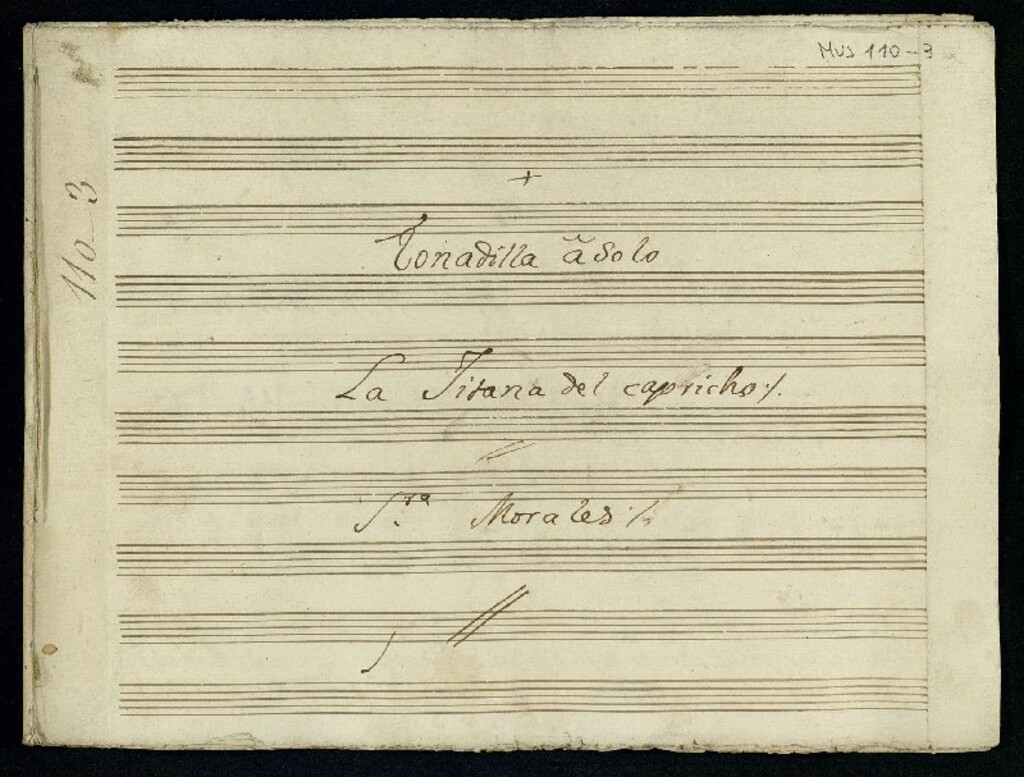 Mus 110-3
110-3
+
Tonadilla â Solo
La Tirana del capricho ·/.
S.ra Morales ·/.